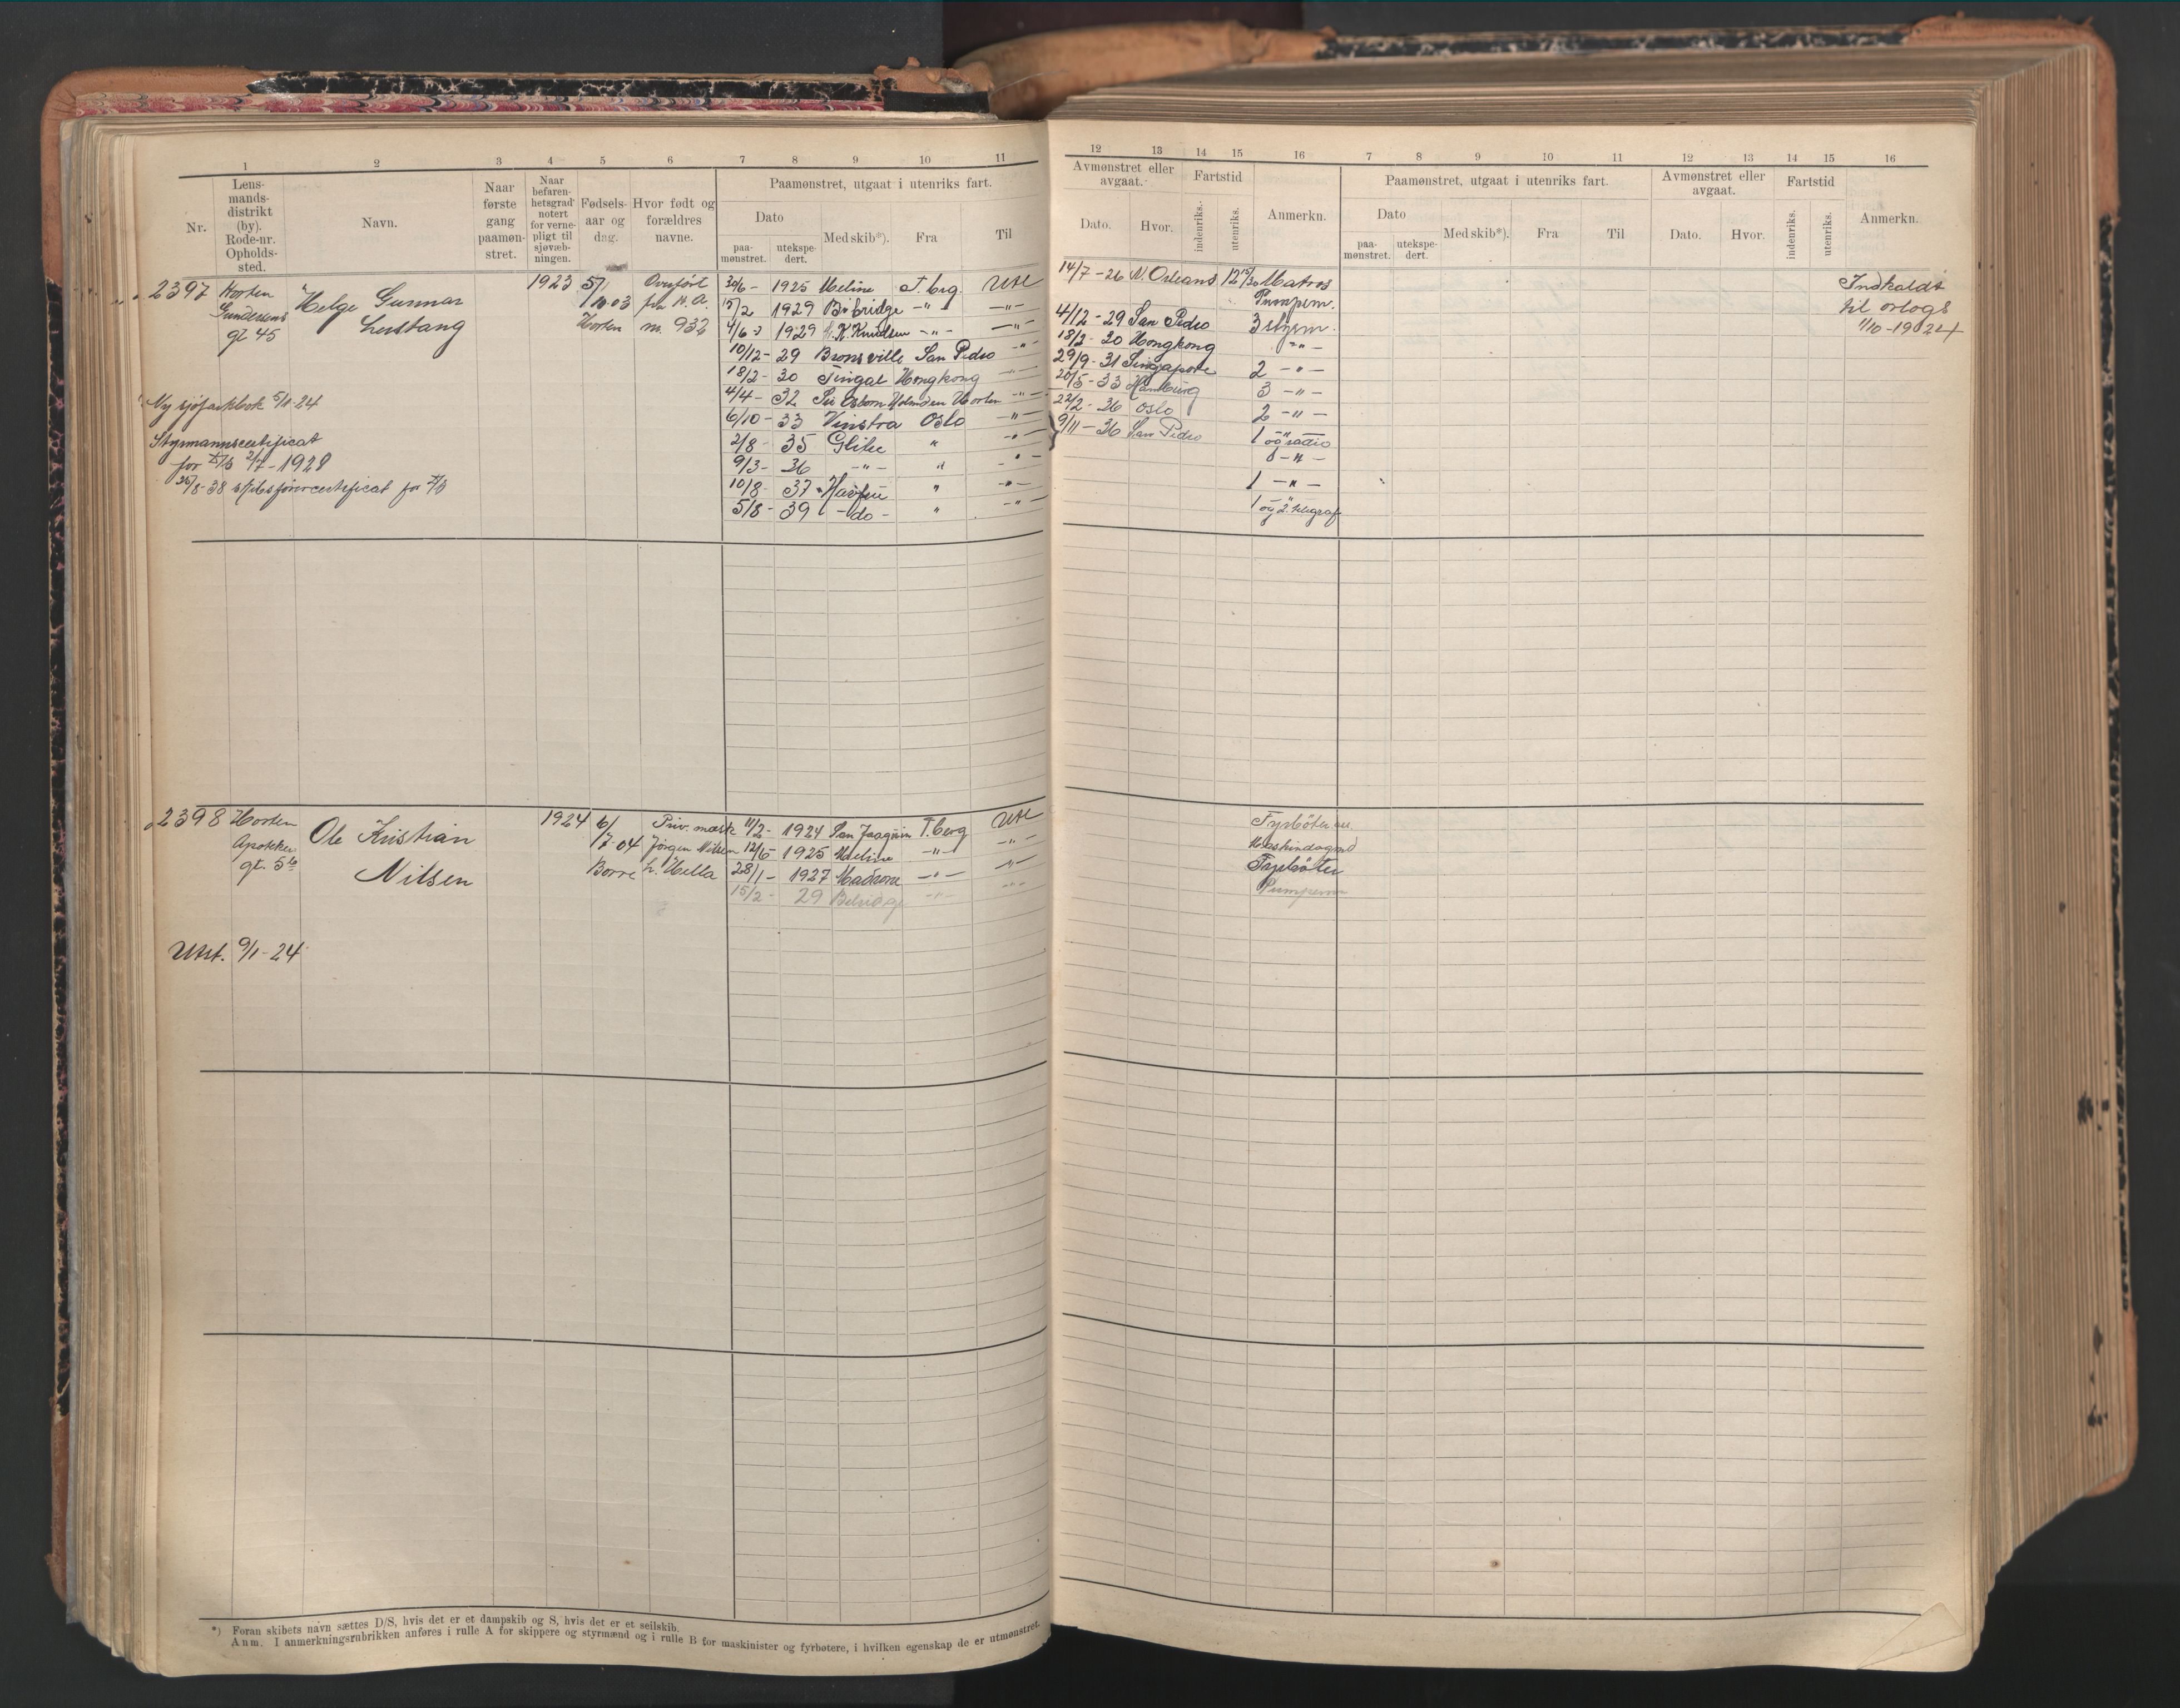 1 2 3 4 5 6 7 8 9 10 11
Nr.
Lens-
mands-
distrikt
(by).
Rode-nr.
Opholds-
sted.
Navn.
Naar
første
gang
paamøn-
stret.
Naar
befaren-
hetsgrad
notert
for verne-
pligt til
sjøvæb-
ningen.
Fødsels-
aar og
dag.
Hvor født og
forældres
navne.
Paamønstret, utgaat i utenriks fart.
Dato
paa-
mønstret.
utekspe-
dert.
Med skib*).
Fra
Til
2397
Horten
Gundersens
gt 45
Helge Gunnar
Lustang
1923
5/
10-03
Horten
Overført
fra A.
m. 932
30/6- 1925 Meline T.berg. Ute
15/2 1929 -"- -"-
4/6- 1929 K. Knudsen -"- -"-
10/12- 29 Bronsville San Pedro -"-
18/2- 30 Tingal Hongkong -"-
4/4- 32 Horten -"-
6/10- 33 Vinstra Oslo -"-
2/8- 35 Glitre " -"-
9/3- 36 -"- " -"-
10/8- 37 Havfru " -"-
5/8- 39 -do- " -"-
Ny sjøfartsbok 5/1-24
Styrmannscertificat
for 2/7-1928
26/8-38 skibsførercertificat for
2398
Horten
Apotheker
gt. 5b
Ole Kristian
Nilsen
1924
6/
7-04
Borre
Priv. mask
Jørgen Nilsen
h. Hella
11/2- 1924 San Joaquin T.berg Ute
12/6- 1925 Meline -"- -"-
28/1- 1927 Madrone -"- -"-
15/2- 29 Belridge -"- -"-
Utst. 9/1-24
*) Foran skibets navn sættes D/S, hvis det er et dampskib og S, hvis det er et seilskib.
Anm. I anmerkningsrubrikken anføres i rulle A for skippere og styrmænd og i rulle B for maskinister og fyrbøtere, i hvilken egenskap de er utmønstret.
12 13 14 15 16 7 8 9 10 11 12 13 14 15 16
Avmønstret eller
avgaat.
Dato.
Hvor.
Fartstid
indenriks.
utenriks.
Anmerkn.
Paamønstret, utgaat i utenriks fart.
Dato
paa-
mønstret.
utekspe-
dert.
Med skib*).
Fra
Til
Avmønstret eller
avgaat.
Dato.
Hvor.
Fartstid
indenriks.
utenriks.
Anmerkn.
14/7-26 N. Orleans 12 15/30 Matros
Pumpem.
4/12-29 San Pedro 3 styrm.
18/2-30 Hongkong -"-
29/9-31 Singapore 2 -"-
20/5-33 Hamburg 3 -"-
22/2-36 Oslo 2 -"-
9/11-36 San Pedro 1 og radio
-"-
1 -"-
1 og 2. telegraf
Indkaldt
til orlogs
1/10-1924
Fyrbøter
Fyrbøter
Pumpem